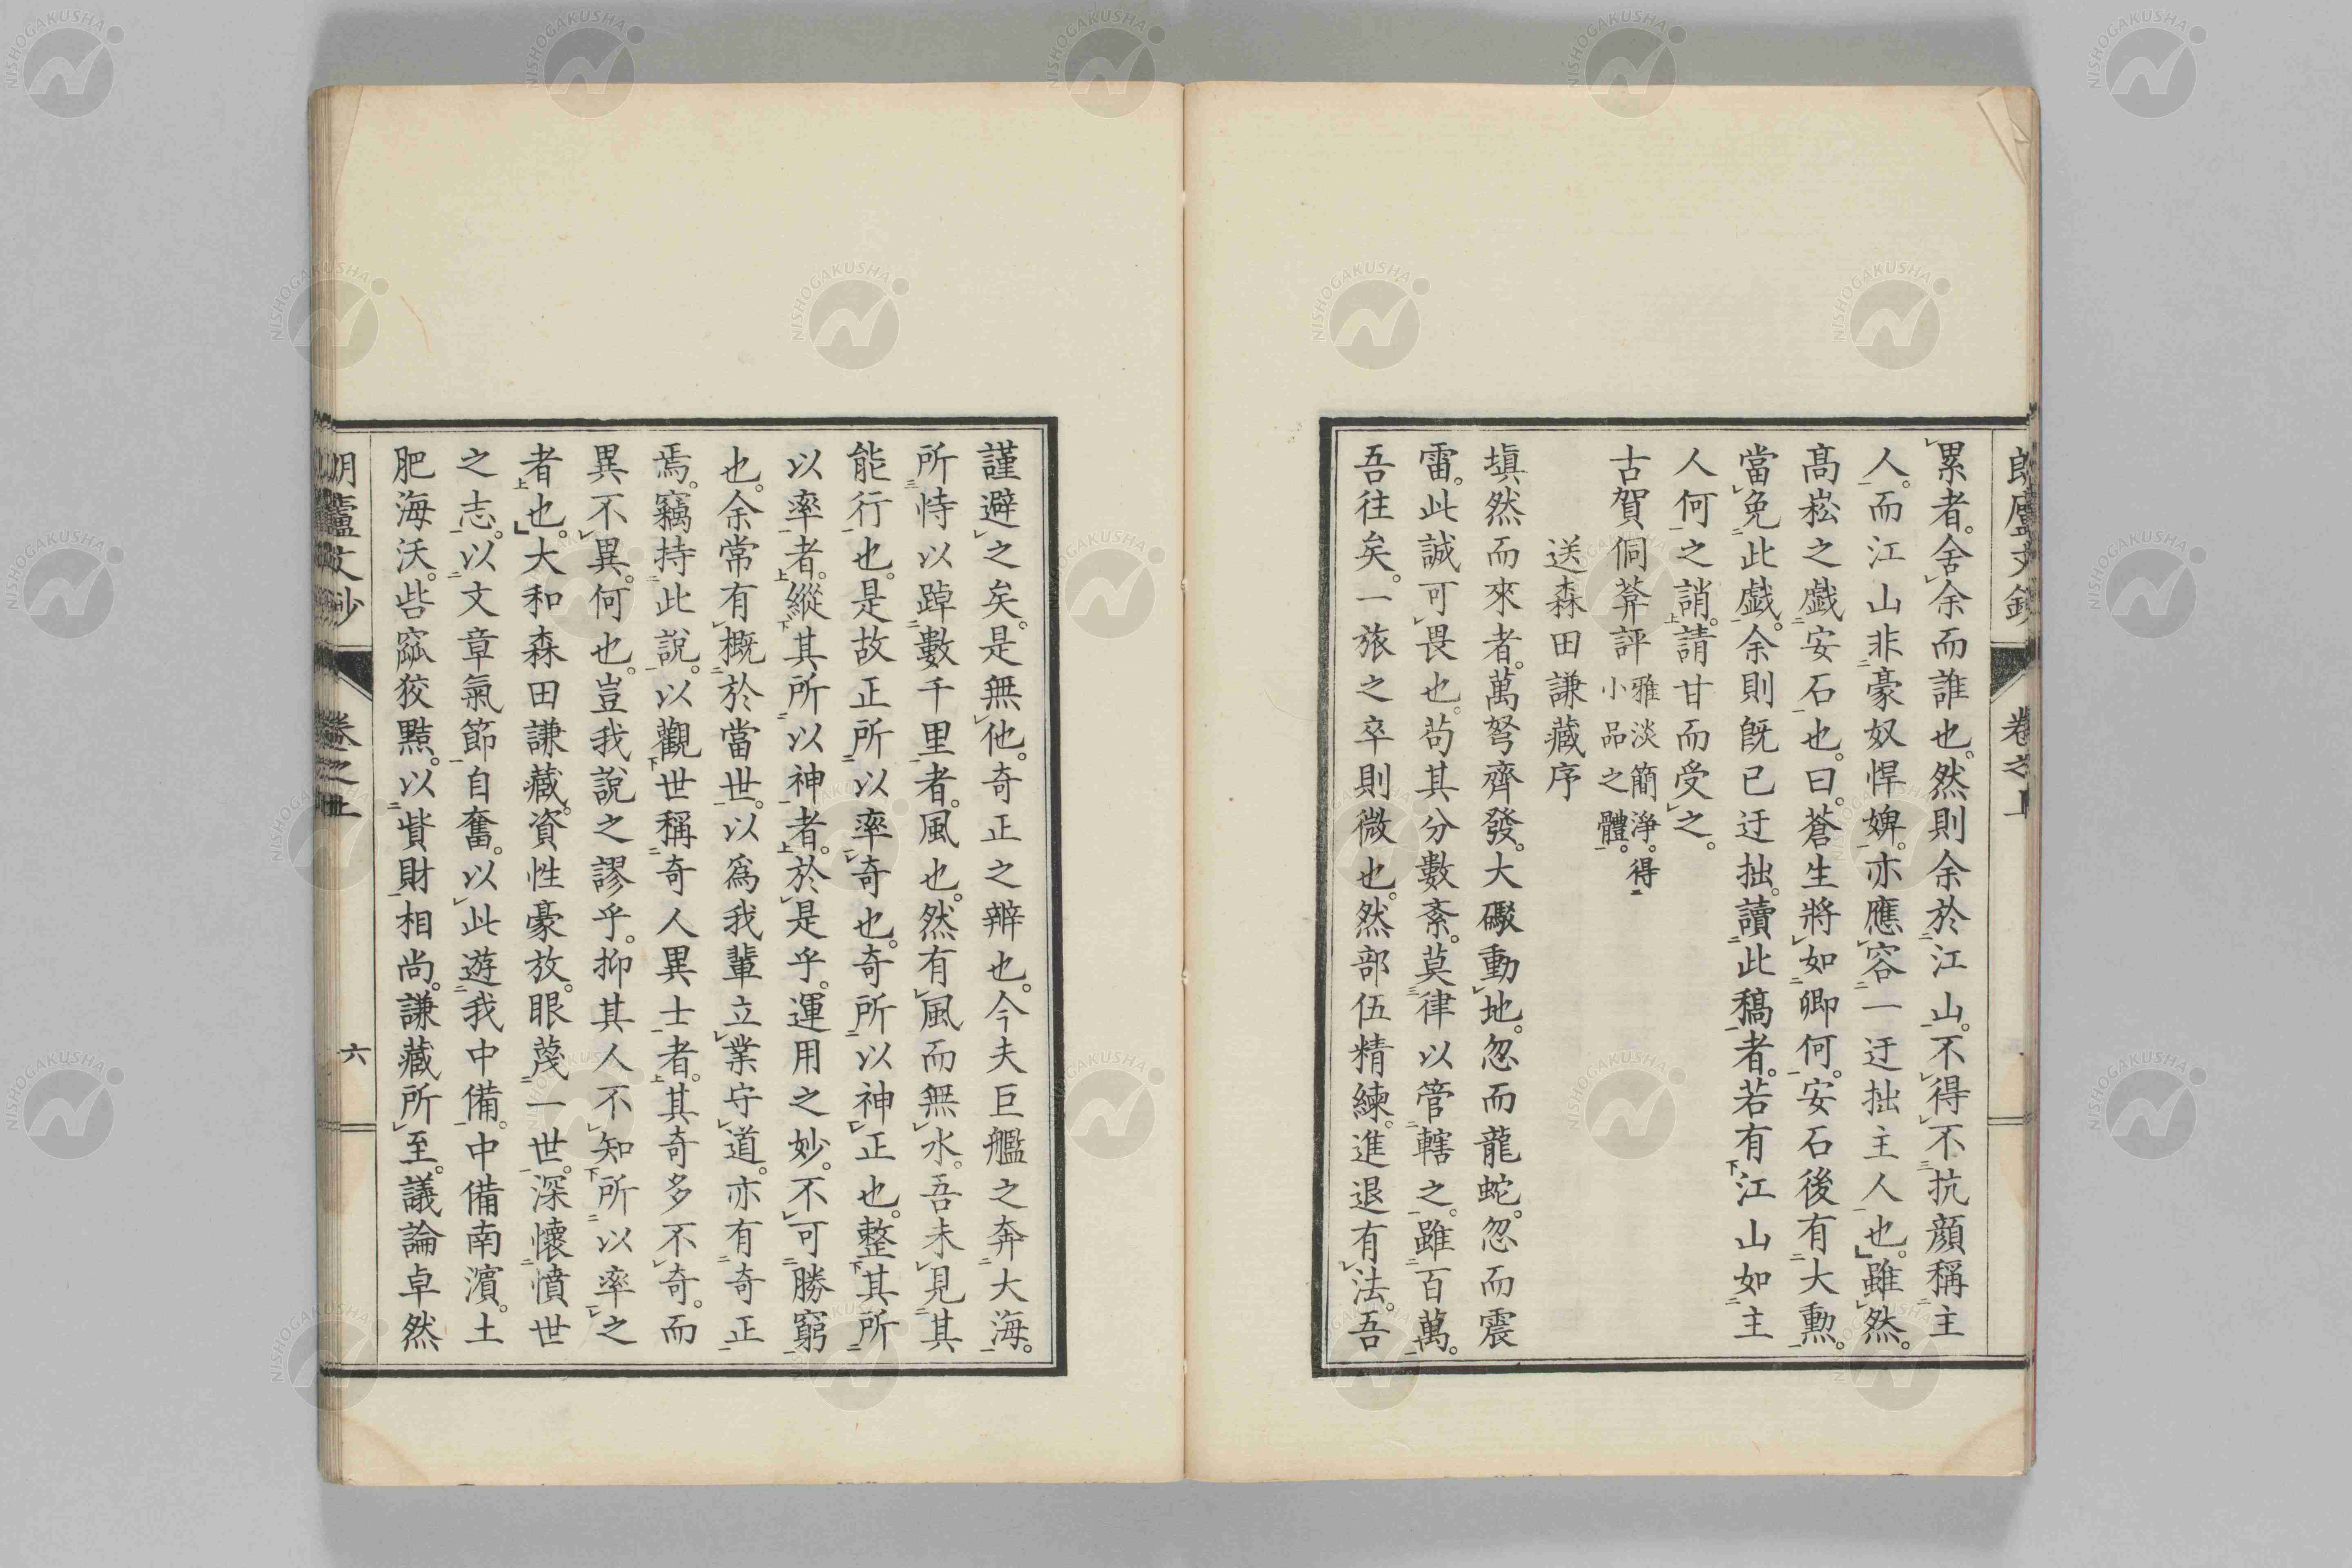 郎廬文鈔 卷之上
累者。舍余而誰也。然則余於江山。不得不抗顔稱主
人。而江山非豪奴悍婢。亦應容一迂拙主人也。雖然。
髙崧之戯安石也。曰。蒼生將如卿何。安石後有大勲。
當免此戯。余則既已迂拙。讀此稿者。若有江山如主
人何之誚。請甘而受之。
古賀侗菴評 雅淡簡淨。得
小品之體。
送森田謙藏序
塡然而來者。萬弩齊發。大礮動地。忽而龍蛇。忽而震
雷。此誠可畏也。苟其分數紊。莫律以管轄之。雖百萬。
吾往矣。一旅之卒則微也。然部伍精練。進退有法。吾
謹避之矣。是無他。奇正之辨也。今夫巨艦之奔大海。
所恃以踔數千里者。風也。然有風而無水。吾未見其
能行也。是故正所以率奇也。奇所以神正也。整其所
以率者。縱其所以神者。於是乎。運用之妙。不可勝窮
也。余常有概於當世。以爲我輩立業守道。亦有奇正
焉。竊持此說。以觀世稱奇人異士者。其奇多不奇。而
異不異。何也。豈我說之謬乎。抑其人不知所以率之
者也。大和森田謙藏。資性豪放。眼蔑一世。深懷憤世
之志。以文章氣節自奮。以此遊我中備。中備南濱。土
肥海沃。呰窳狡黠。以貲財相尚。謙藏所至。議論卓然
郎廬文鈔 卷之上 六